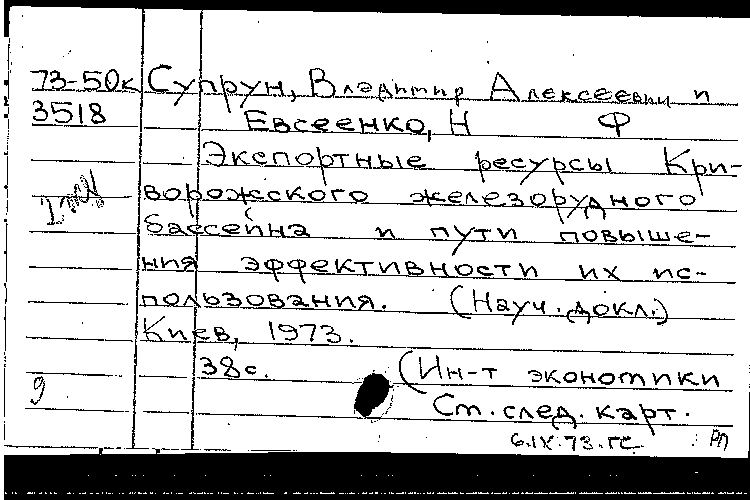 73-50к Супрун, Владимир Алексеевич и
3518 Евсеенко, Н Ф
Экспортные ресурсы Кри-
ворожского железорудного
бассейна и пути повыше-
ния эффективности их ис-
пользования. (Науч. докл.)
Киев, 1973.
38с. (Ин-т экономики
9 См. след. карт.
6.IX.73.ГС РП